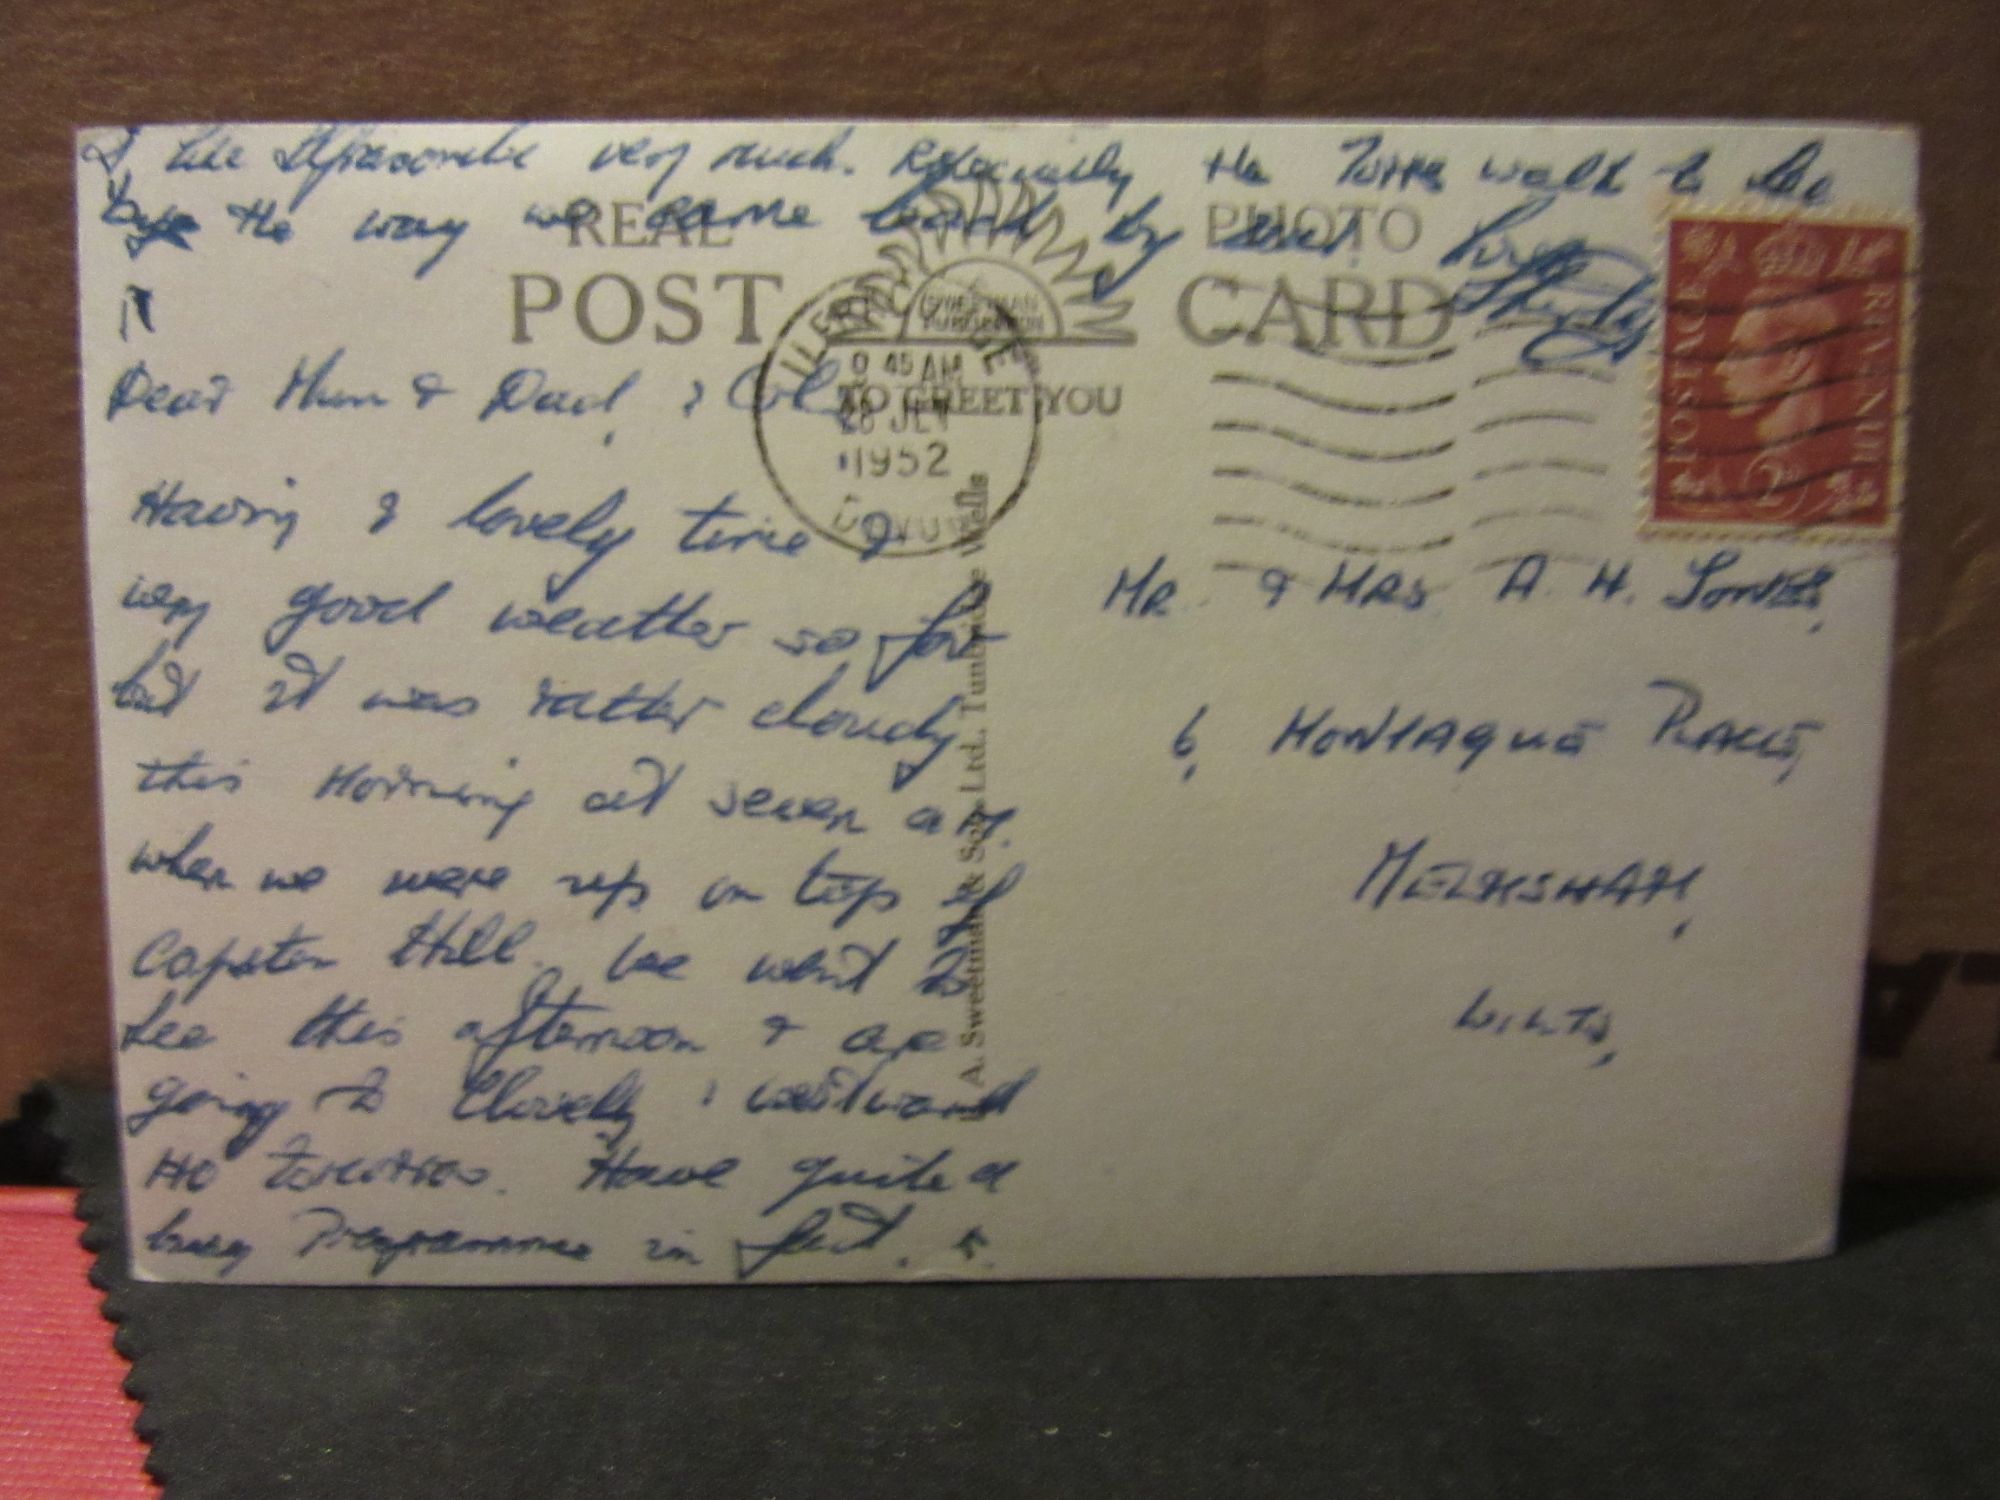 I like Ilfracombe very much. Especially the Torrs walk to Lee
the way we came back by
REAL PHOTO
POST CARD
SWEETMAN PUBLICATION
TO GREET YOU
ILFRACOMBE
9 45 AM
1952
DEVON
POSTAGE REVENUE
Dear Mum & Dad, & Col
Having a lovely time &
very good weather so far
but it was rather cloudy
this morning at seven a.m.
when we were up on top of
Capston Hill. We went to
Lee this afternoon & are
going to Clovelly & Westward
Ho tomorrow. Have quite a
busy Programme in fact.
A. Sweetman & Son, Ltd., Tunbridge Wells
MR. & MRS A. H.
6, MONTAGUE PLACE,
MELKSHAM,
WILTS,